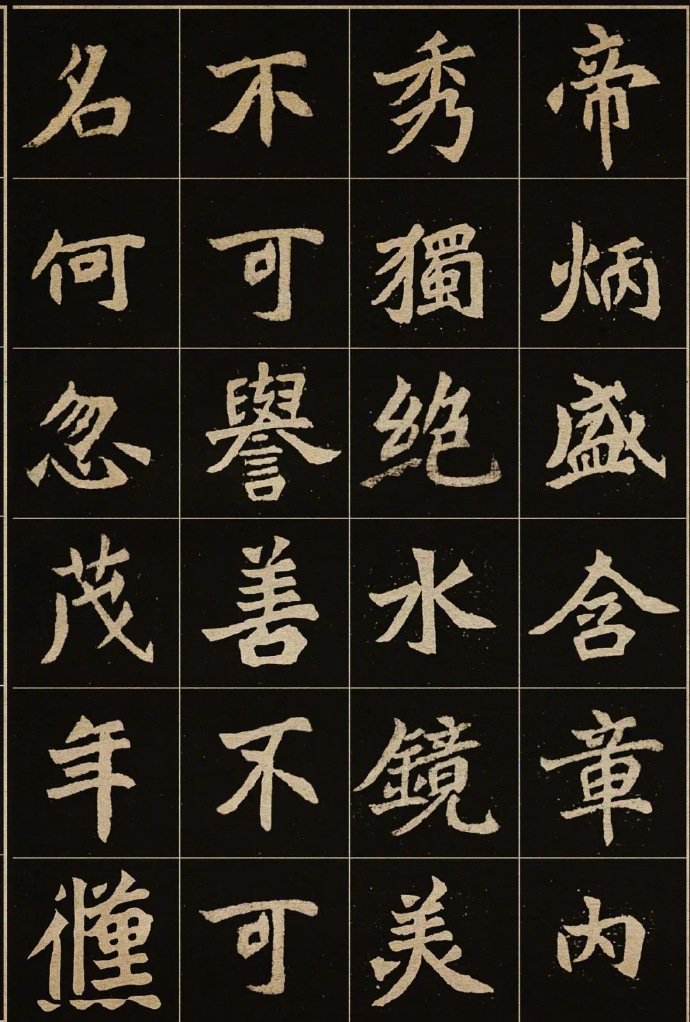 帝炳盛含章内
秀獨絶水鏡美
不可譽善不可
名何忽茂年